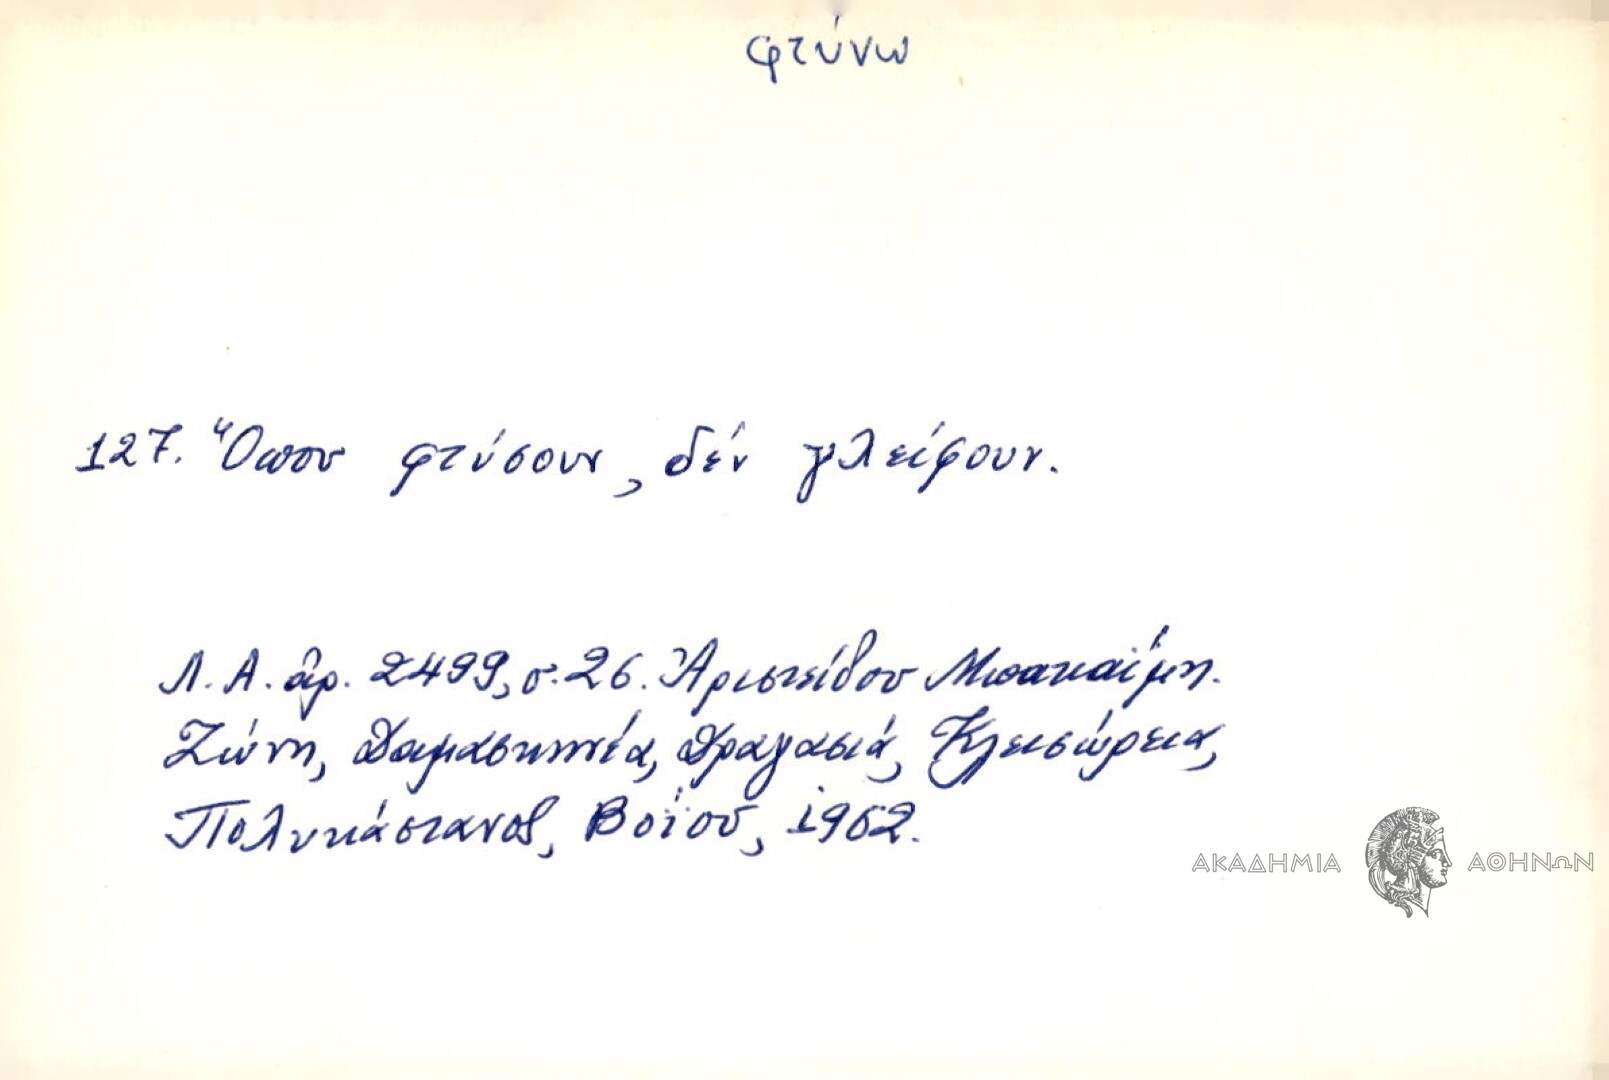 φτύνω
127. Ὅπου φτύσουν, δέν γλείφουν.
Λ.Α. ἀρ. 2499, σ. 26. Ἀριστείδου Μπακαΐμη.
Ζώνη, Δαμασκηνέα, Δραγασιά, Κλεισώρεια,
Πολυκάστανος, Βοΐου, 1962.
ΑΚΑΔΗΜΙΑ ΑΘΗΝΩΝ